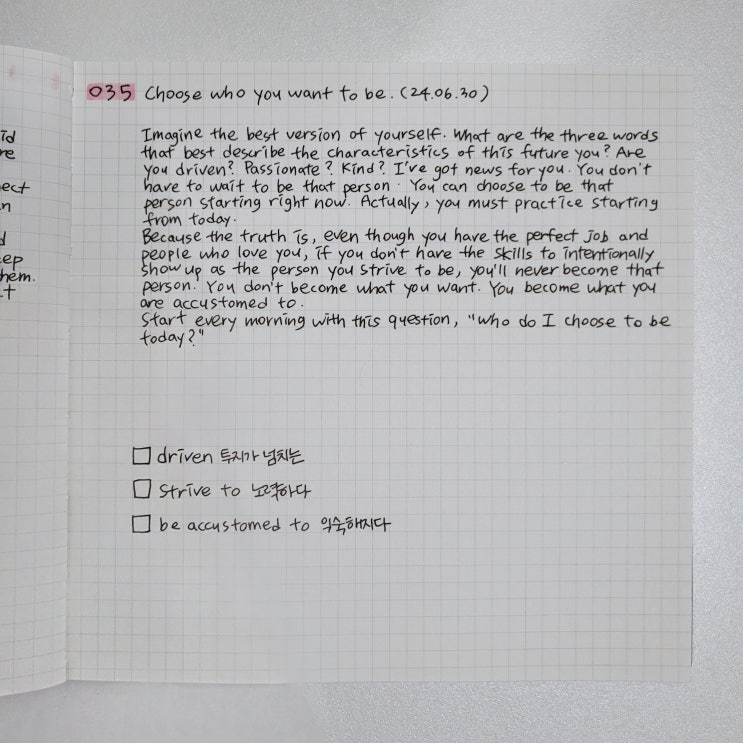 id
re
ect
n
d
eep
hem.
t
035 Choose who you want to be. (24.06.30)
Imagine the best version of yourself. What are the three words
that best describe the characteristics of this future you? Are
you driven? Passionate? Kind? I've got news for you. You don't
have to wait to be that person. You can choose to be that
person starting right now. Actually, you must practice starting
from today.
Because the truth is, even though you have the perfect job and
people who love you, if you don't have the skills to intentionally
show up as the person you strive to be, you'll never become that
person. You don't become what you want. You become what you
are accustomed to.
Start every morning with this question, "Who do I choose to be
today?"
driven 투지가 넘치는
strive to 노력하다
be accustomed to 익숙해지다